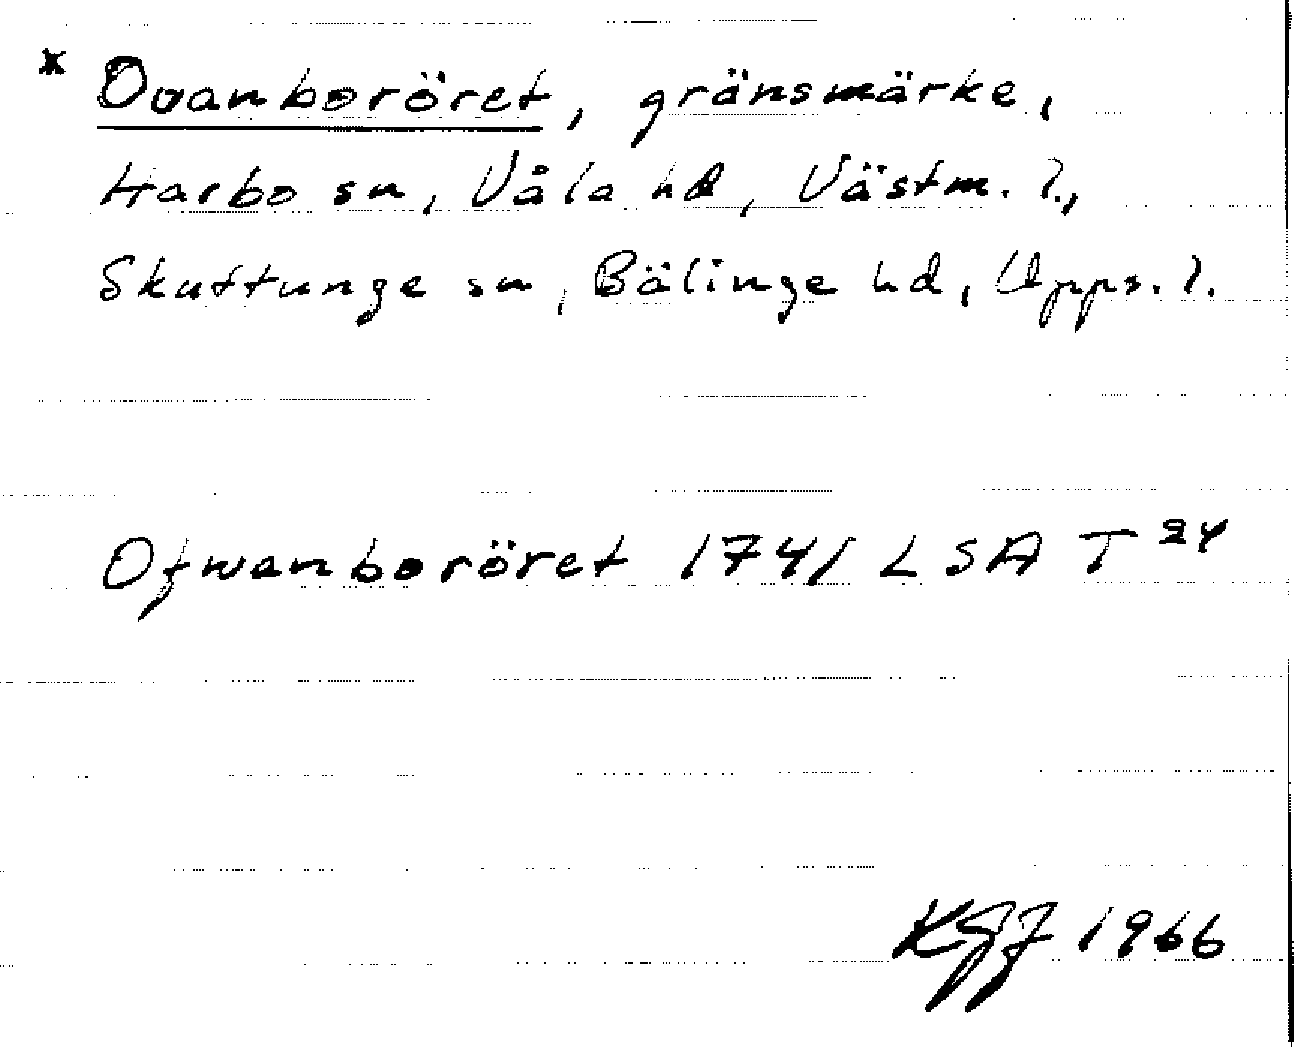 * Ovanboröret, gränsmärke,
Harbo sn, Våla hd, Västm. l.,
Skuttunge sn, Bälinge hd, Upps. l.
Ofwanboröret 1741 LSA T 24
KGJ 1966